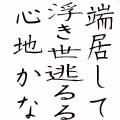 端居して
浮き世逃るる
心地かな